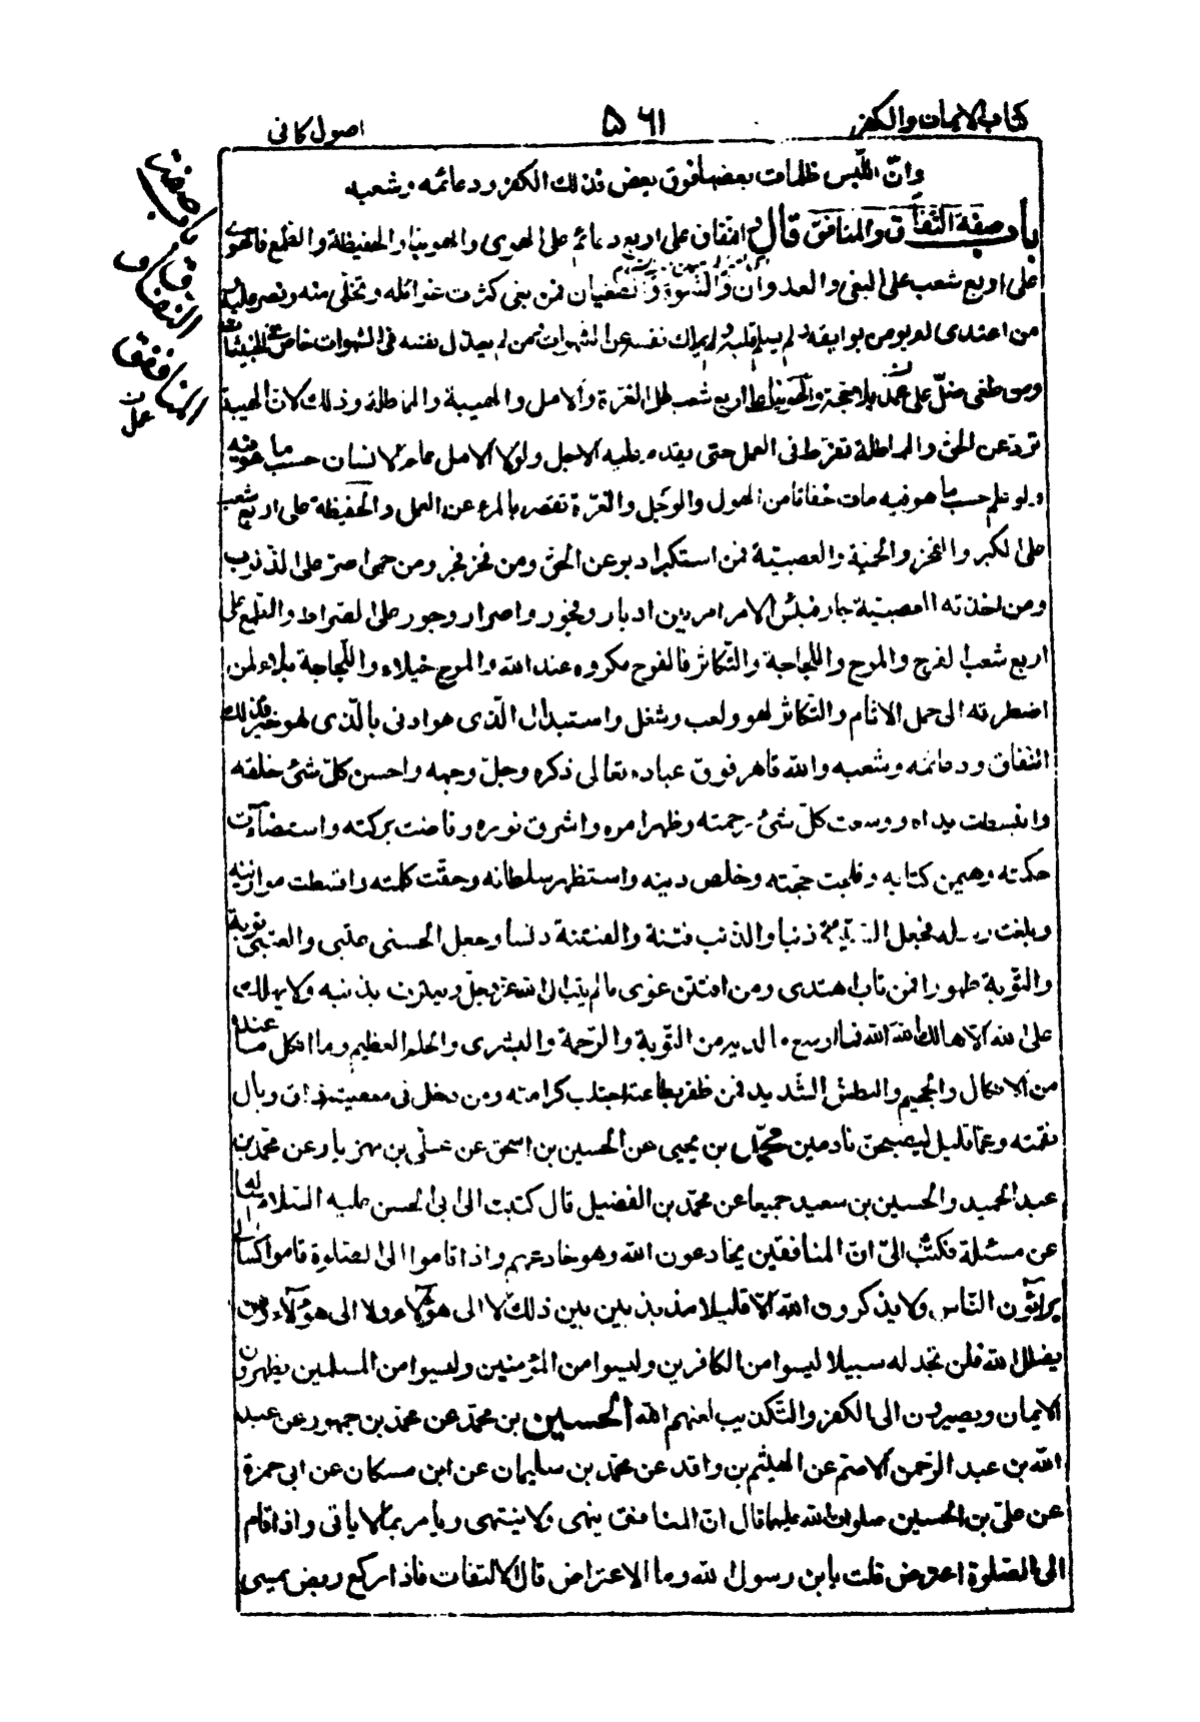 كتاب الايمان والكفر ۵۶۱ اصول كافى
وانّ اللّبس ظلمات بعضها فوق بعض فذلك الكفر ودعائمه وشعبه
باب صفة النّفاق والمنافق قال و النفاق على اربع دعائم على الهوى والهوينا والحفيظة والطمع فالهوى
على اربع شعب على البغى والعدوان والشهوة والطغيان فمن بغى كثرت غوائله وتخلّى منه ونصر عليه
من اعتدى لم يومن بوايقه ولم يسلم قلبه ولم يملك نفسه عن الشهوات ومن لم يعذل نفسه فى الشهوات خاض فى الخبيثات
ومن طغى ضلّ على عمد بلا حجة والهوينا على اربع شعب على الغرّة والامل والهيبة والمماطلة وذلك لانّ الهيبة
تردّ عن الحق والمماطلة تفرّط فى العمل حتى يقدم عليه الاجل ولولا الامل علم الانسان حسب ما هو فيه
ولو علم حسب ما هو فيه مات خفاتا من الهول والوجل والغرّة تقصر بالمرء عن العمل والحفيظة على اربع شعب
على الكبر والفخر والحميّة والعصبيّة فمن استكبر ادبر عن الحق ومن فخر فجر ومن حمى اصرّ على الذنوب
ومن اخذته العصبيّة جار فبئس الامر امر بين ادبار وفجور واصرار وجور على الصّراط والطمع على
اربع شعب الفرح والمرح واللجاجة والتّكاثر فالفرح مكروه عند الله والمرح خيلاء واللّجاجة بلاء لمن
اضطرته الى حمل الاثام والتكاثر لهو ولعب وشغل واستبدال الّذى هو ادنى بالّذى هو خير فذلك
النّفاق ودعائمه وشعبه والله قاهر فوق عباده تعالى ذكره وجلّ وجهه واحسن كلّ شئ خلقه
وانبسطت يداه ووسعت كلّ شئ رحمته وظهر امره واشرق نوره وفاضت بركته واستضآءت
حكمته وهيمن كتابه وفلجت حجّته وخلص دينه واستظهر سلطانه وحقّت كلمته واقسطت موازينه
وبلغت رسله فجعل السّيئة ذنبا والذنب فتنة والفتنة دنسا وجعل الحسنى عتبى والعتبى توبة
والتّوبة طهورا فمن تاب اهتدى ومن افتتن غوى ما لم يتب الى الله عزّ وجلّ ويعترف بذنبه ولا يهلك
على الله الّا هالك الله الله فما اوسع ما لديه من التّوبة والرّحمة والبشرى والحلم العظيم وما انكل ما عنده
من الانكال والجحيم والبطش الشّديد فمن ظفر بطاعته اجتلب كرامته ومن دخل فى معصيته ذاق وبال
نقمته وعمّا قليل ليصبحنّ نادمين محمّد بن يحيى عن الحسين بن اسحق عن علىّ بن مهزيار عن محمّد بن
عبد الحميد والحسين بن سعيد جميعا عن محمّد بن الفضيل قال كتبت الى ابى الحسن عليه السّلام اسئله
عن مسئلة فكتب الىّ انّ المنافقين يخادعون الله وهو خادعهم واذا قاموا الى الصّلوة قاموا كسالى
يرآئون النّاس ولا يذكرون الله الّا قليلا مذبذبين بين ذلك لا الى هؤلاء ولا الى هؤلآء ومن
يضلل الله فلن تجد له سبيلا ليسوا من الكافرين وليسوا من المؤمنين وليسوا من المسلمين يظهرون
الايمان ويصيرون الى الكفر والتّكذيب لعنهم الله الحسين بن محمّد عن محمّد بن جمهور عن عبد
الله بن عبد الرّحمن الاصمّ عن الهيثم بن واقد عن محمّد بن سليمان عن ابن مسكان عن ابى حمزة
عن علىّ بن الحسين صلوات الله عليهما قال انّ المنافق ينهى ولا ينتهى ويامر بما لا ياتى واذا قام
الى الصّلوة اعترض قلت يا بن رسول الله وما الاعتراض قال الالتفات فاذا ركع ربض يمسى
صفة
باب
النفاق و
المنافق